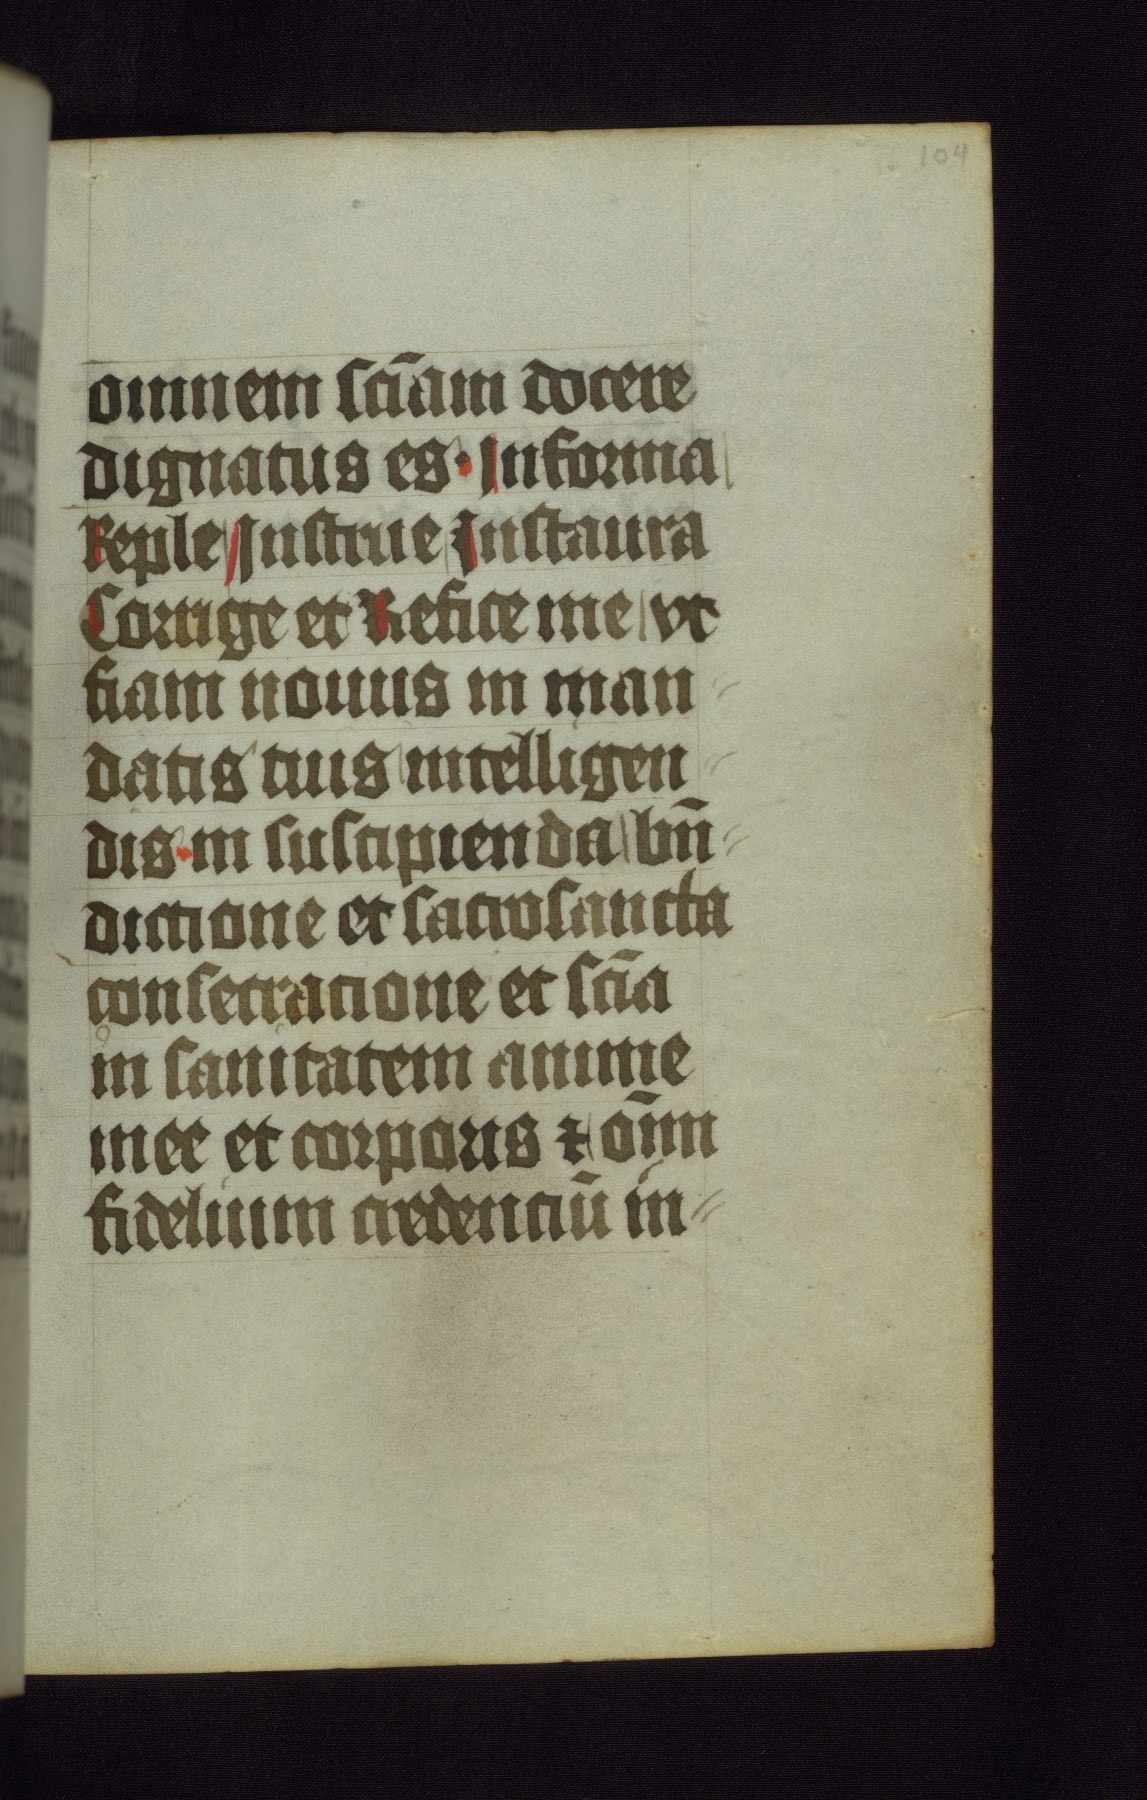 104
omnem scīam docere
dignatus es · Informa
Reple Instrue Instaura
Corrige et Refice me vt
fiam nouus in man
datis tuis intelligen
dis · in suscipienda bn̄
dictione et sacrosancta
consecracione et scīa
in sanitatem anime
mee et corporis ⁊ om̄n
fidelium credenciū in